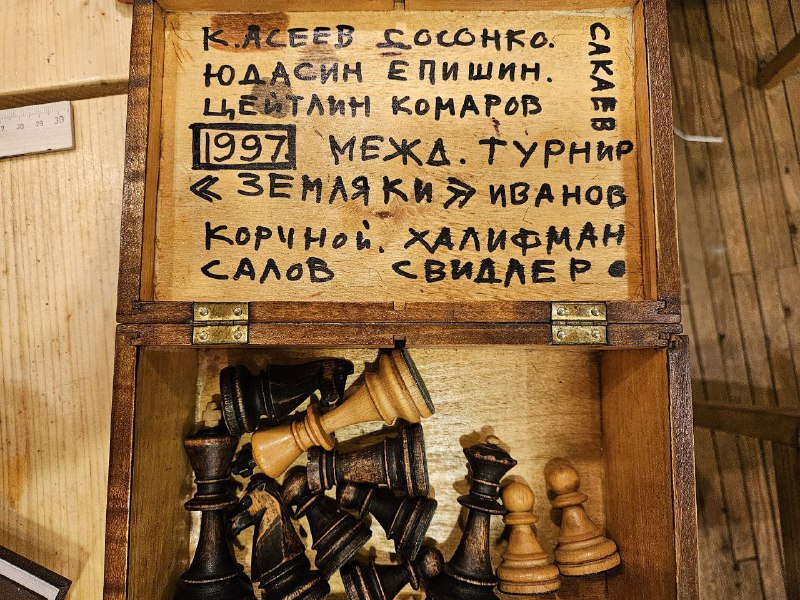 К. АСЕЕВ СОСОНКО.
ЮДАСИН ЕПИШИН.
ЦЕЙТЛИН КОМАРОВ
САКАЕВ
1997 МЕЖД. ТУРНИР
« ЗЕМЛЯКИ » ИВАНОВ
КОРЧНОЙ. ХАЛИФМАН
САЛОВ СВИДЛЕР
7 28 29 30